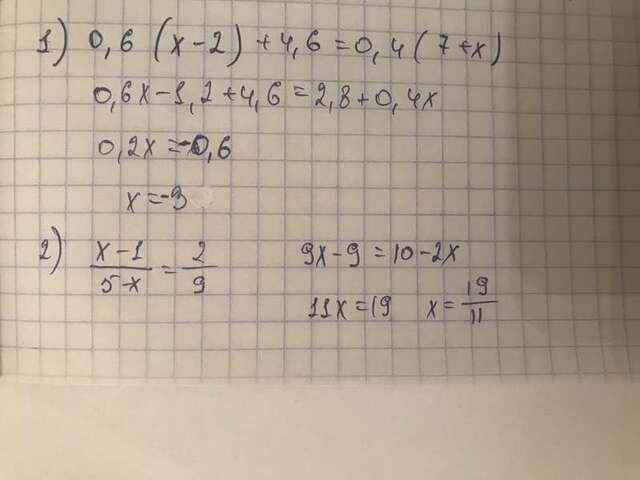 1) 0,6 (x-2) +4,6 = 0,4 (7+x)
0,6x-1,2+4,6=2,8+0,4x
0,2x=-0,6
x=-3
2) \frac{x-1}{5-x} = \frac{2}{9}
9x-9=10-2x
11x=19 x=\frac{19}{11}